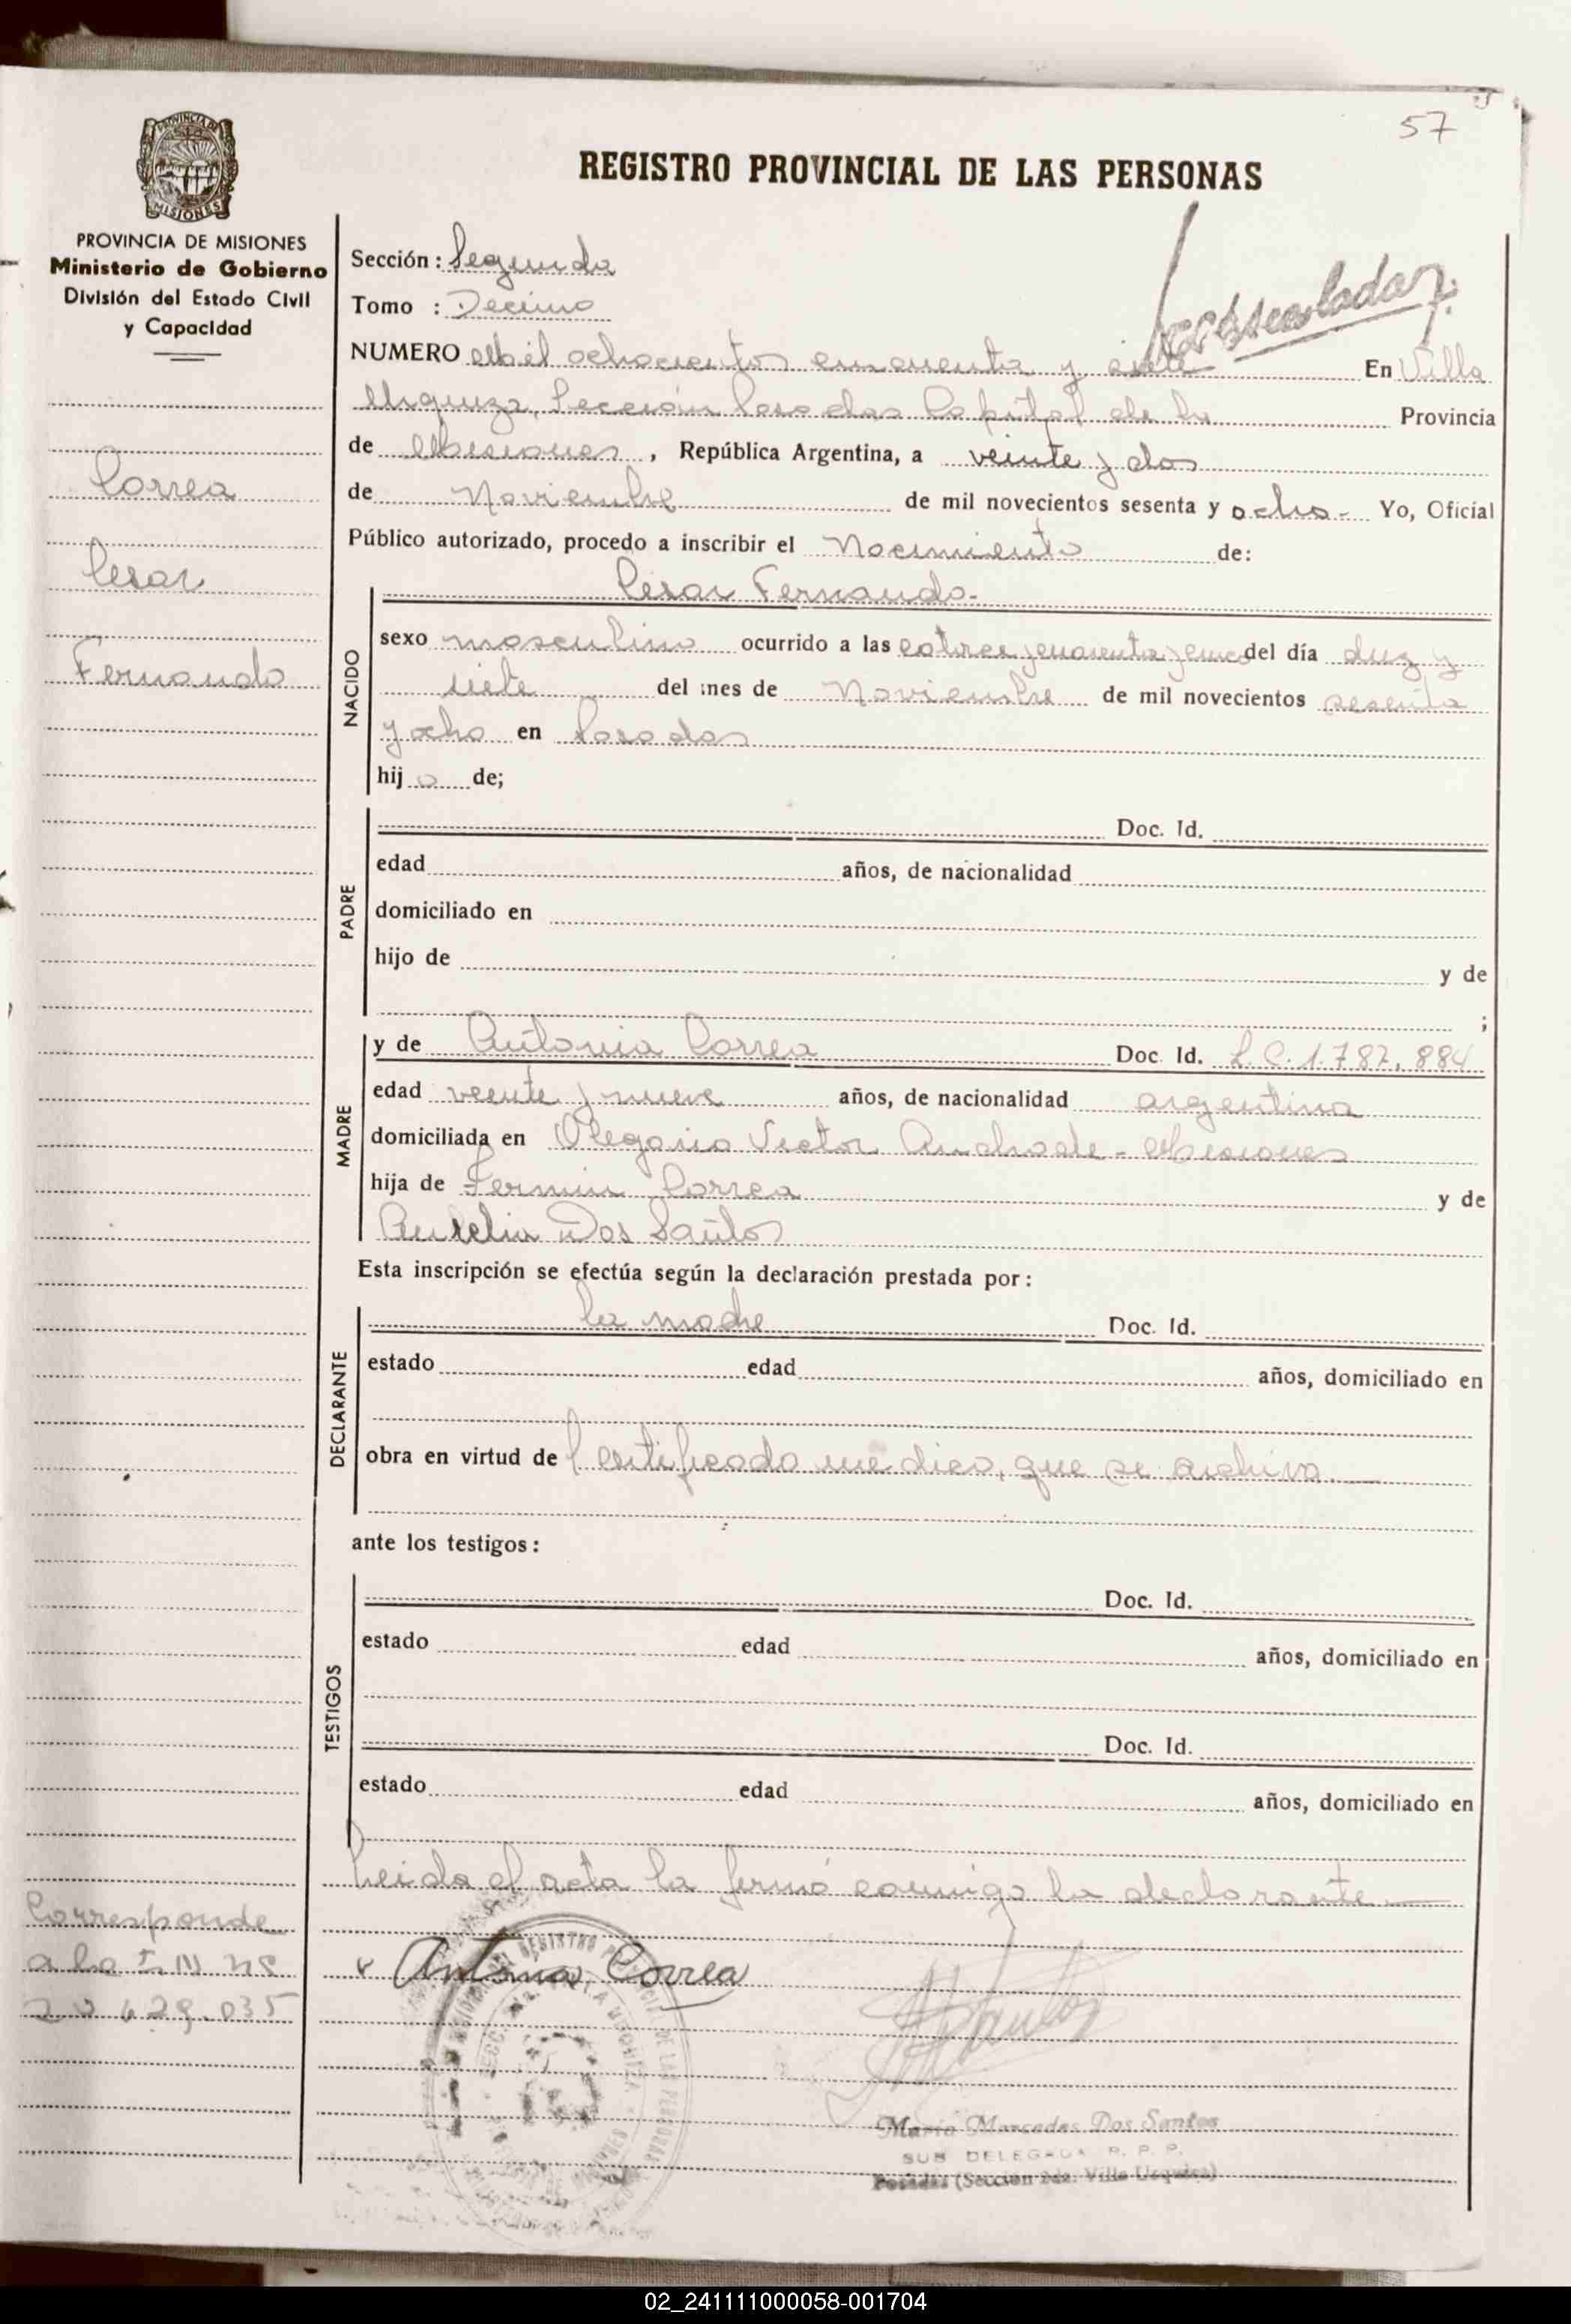 57
REGISTRO PROVINCIAL DE LAS PERSONAS
PROVINCIA DE
MISIONES
PROVINCIA DE MISIONES
Ministerio de Gobierno
División del Estado Civil
y Capacidad
Correa
Cesar
Fernando
Sección: Segunda
Tomo : Decimo
NUMERO Mil ochocientos cincuenta y siete En Villa
Urquiza, Sección Posadas Capital de la Provincia
de Misiones, República Argentina, a veinte y dos
de Noviembre de mil novecientos sesenta y ocho- Yo, Oficial
Público autorizado, procedo a inscribir el Nacimiento de:
NACIDO
Cesar Fernando-
sexo masculino ocurrido a las catorce y cuarenta y cinco del día diez y
siete del mes de Noviembre de mil novecientos sesenta
y ocho en Posadas
hijo de;
PADRE
Doc. Id.
edad años, de nacionalidad
domiciliado en
hijo de y de
;
MADRE
y de Antonia Correa Doc. Id. L.C. 1.787.884
edad veinte y nueve años, de nacionalidad argentina
domiciliada en Olegario Victor Andrade - Misiones
hija de Fermin Correa y de
Aurelia Dos Santos
Esta inscripción se efectúa según la declaración prestada por:
DECLARANTE
la madre Doc. Id.
estado edad años, domiciliado en
obra en virtud de Certificado medico, que se archiva.
ante los testigos:
TESTIGOS
Doc. Id.
estado edad años, domiciliado en
Doc. Id.
estado edad años, domiciliado en
Leida el acta la firmó conmigo la declarante
Antonia Correa
Corresponde
a la
429.035
Maria Mercedes Dos Santos
SUB DELEGADA R. P. P.
Posadas (Sección 2da. Villa Urquiza)
02_241111000058-001704